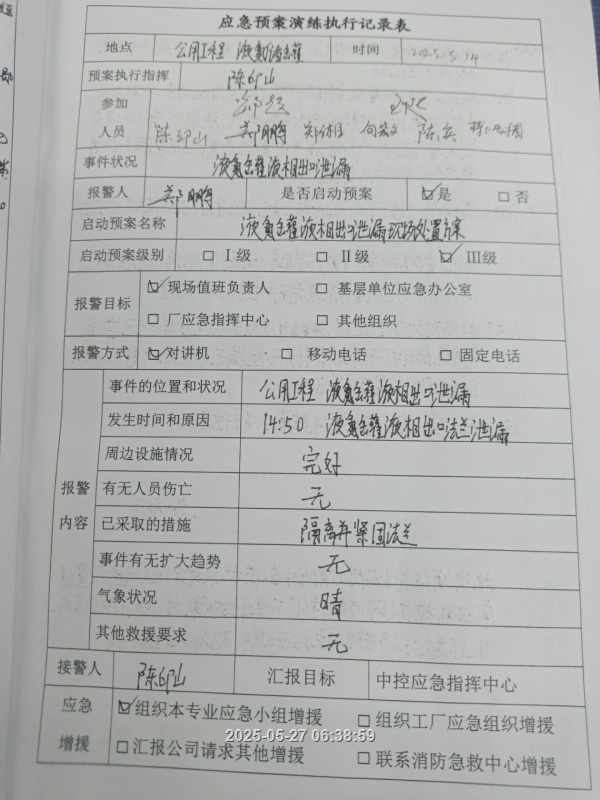 应急预案演练执行记录表
地点 公用工程 液氨储罐 时间 2025.5.14
预案执行指挥 陈印山
参加
人员 陈印山 郑鹏
事件状况 液氨储罐液相出口泄漏
报警人 郑鹏 是否启动预案 ☑是 □否
启动预案名称 液氨储罐液相出口泄漏现场处置方案
启动预案级别 □Ⅰ级 □Ⅱ级 ☑Ⅲ级
报警目标 ☑现场值班负责人 □基层单位应急办公室
□厂应急指挥中心 □其他组织
报警方式 ☑对讲机 □移动电话 □固定电话
报警内容
事件的位置和状况 公用工程 液氨储罐液相出口泄漏
发生时间和原因 14:50 液氨储罐液相出口法兰泄漏
周边设施情况 完好
有无人员伤亡 无
已采取的措施 隔离并紧固法兰
事件有无扩大趋势 无
气象状况 晴
其他救援要求 无
接警人 陈印山 汇报目标 中控应急指挥中心
应急增援 ☑组织本专业应急小组增援 □组织工厂应急组织增援
□汇报公司请求其他增援 □联系消防急救中心增援
2025-05-27 06:38:59